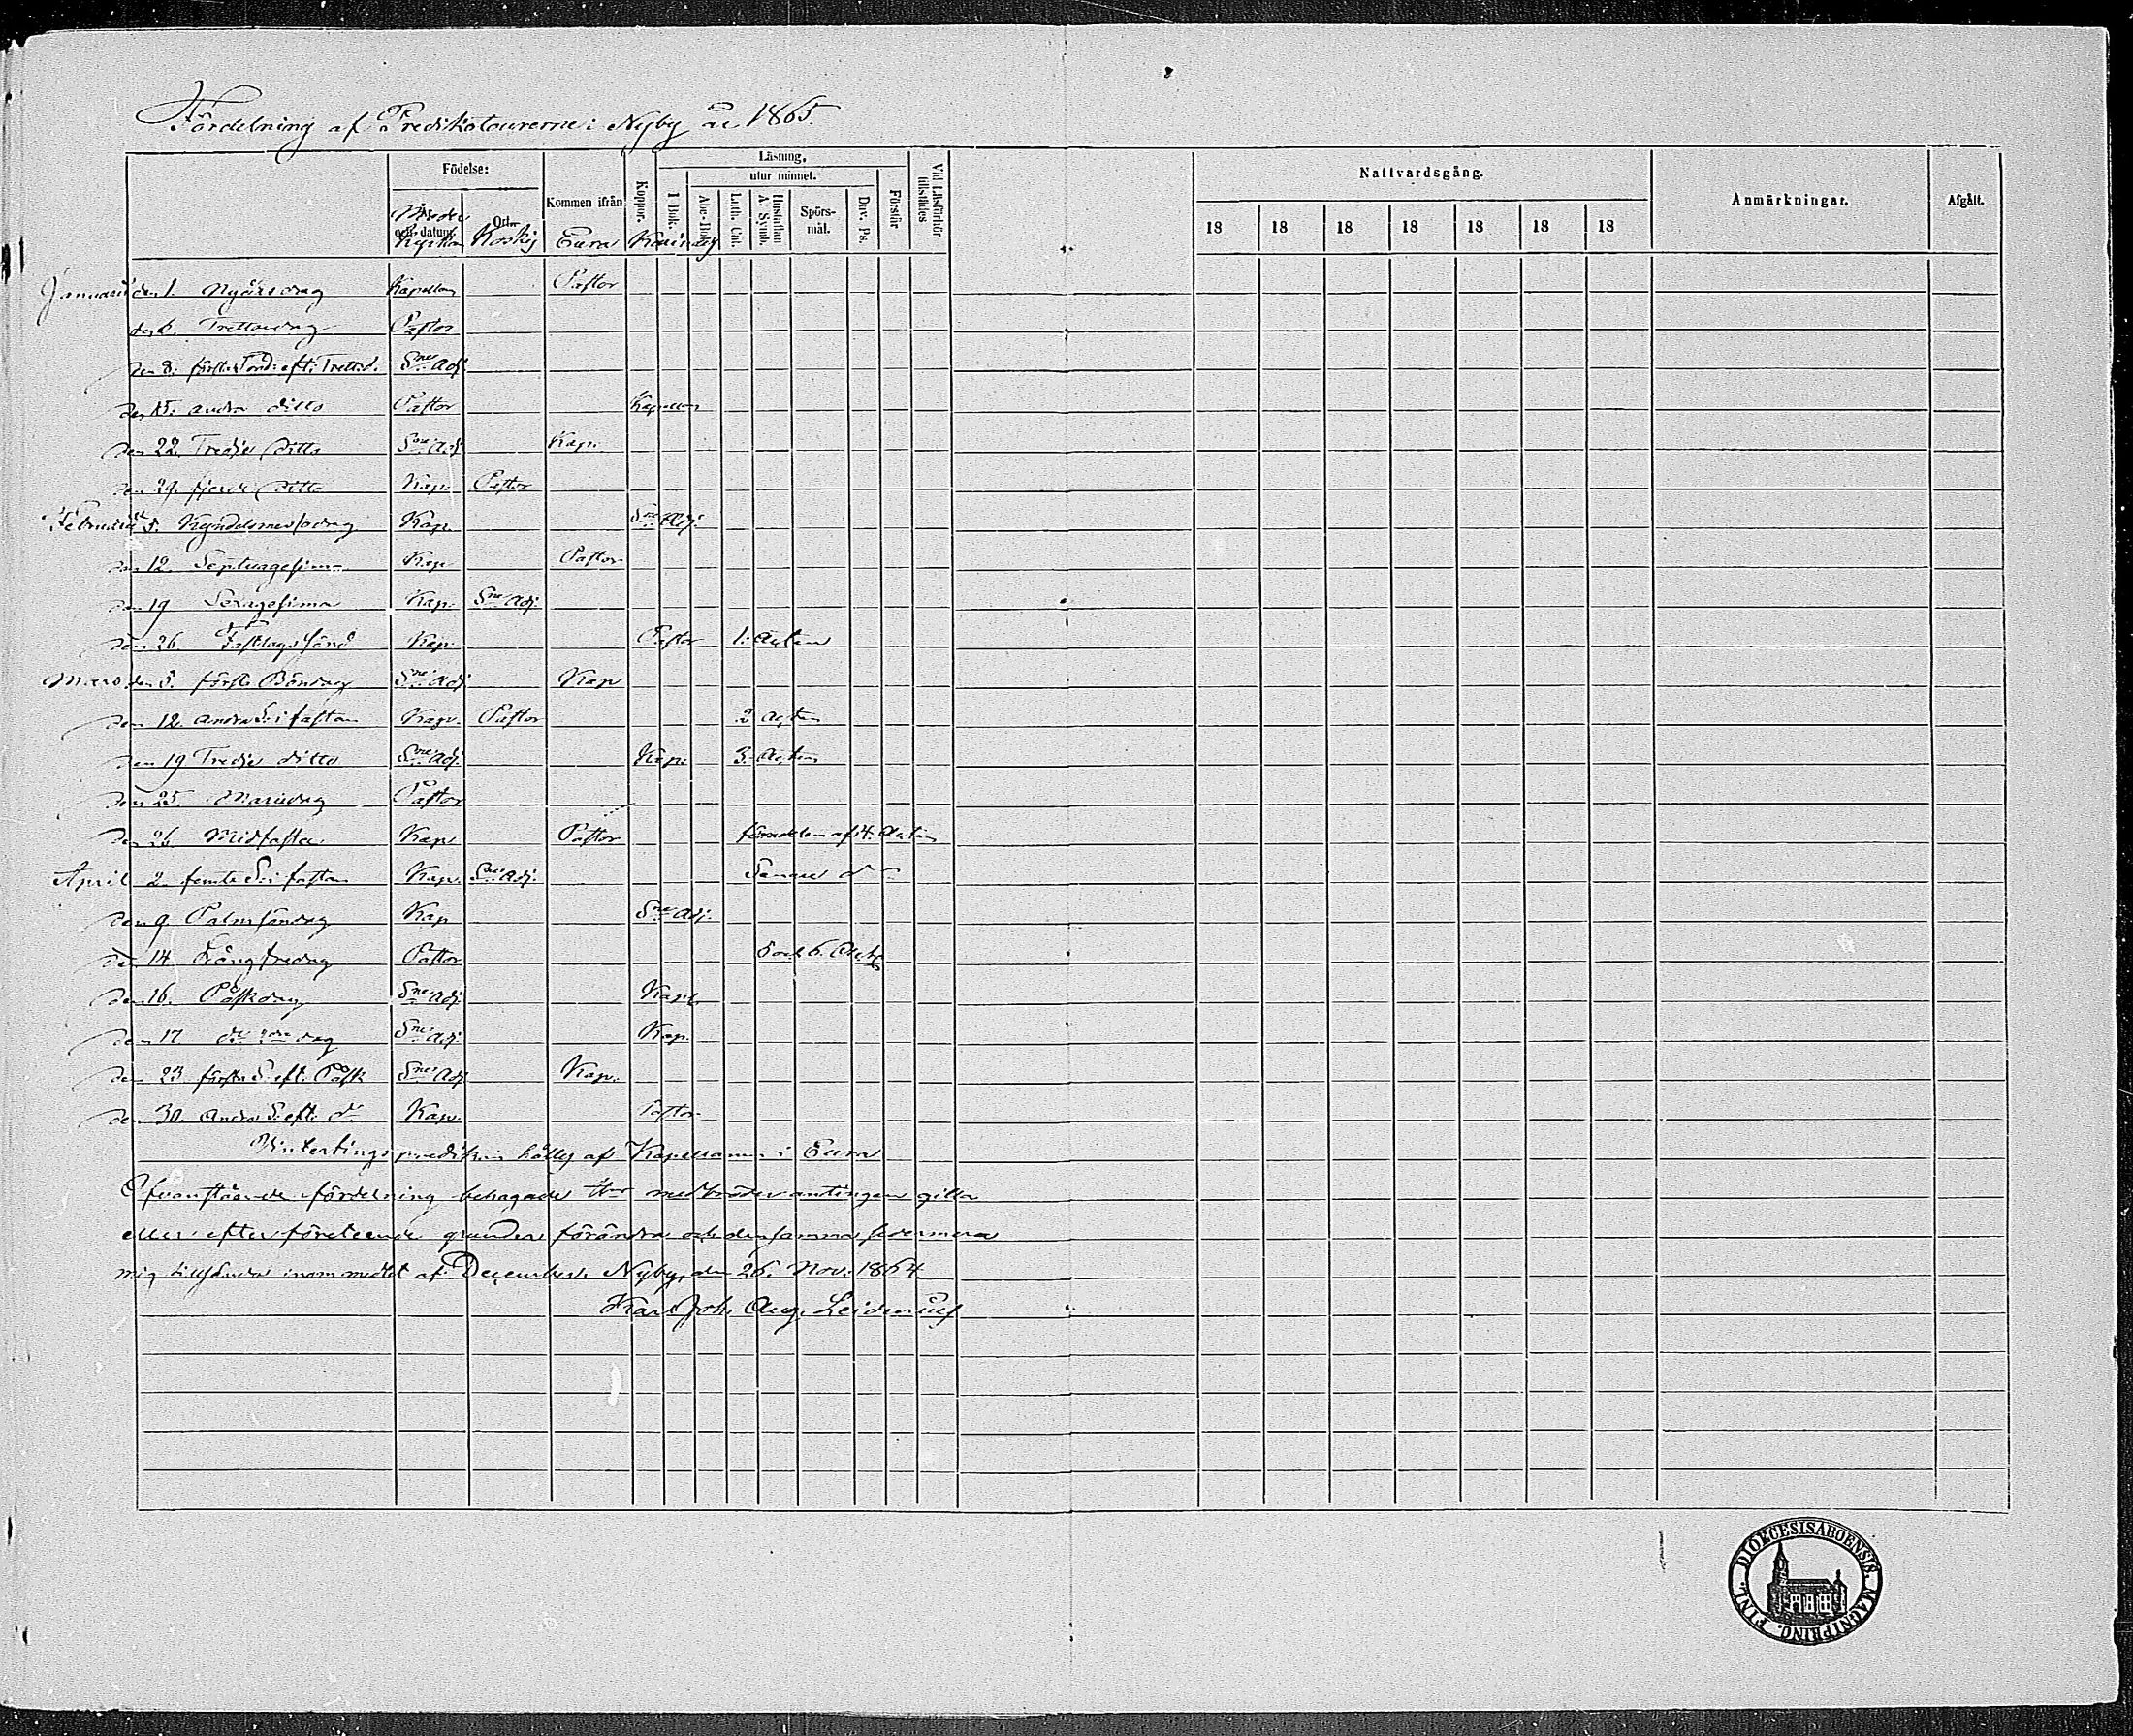 Fördelning af Predikotourerne i Nyby år 1865.
Födelse: Kommen ifrån Koppor. Läsning. Förstår Vid Läsförhör tillstädes Nattvardsgång. Anmärkningar. Afgått.
utur minnet.
I Bok. Abc-Bok. Luth. Cat. Hustaflan A. Symb. Spörsmål. Dav. Ps.
År och datum. Ort.
18 18 18 18 18 18 18
Moder Kyrkan Koskis Eura Karinais
Januarii den 1. Nyårsdag Kapellan Pastor
den 6. Trettondag Pastor
den 8. första Sönd. eft. Trettd. Sne Adj.
den 15. andra ditto Pastor Kapellan
den 22. Tredje ditto Sne Adj. Kap.
den 29. fjerde ditto Kap. Pastor
Februarii 5. Kyndelsmessodag Kap. Sne Adj.
den 12. Septuagesima Kap. Pastor
den 19 Sexagesima Kap. Sne Adj.
den 26 Fastlags Sönd. Kap. Pastor 1. Acten
Mars den 5. första Böndag Sne Adj. Kap.
den 12. andra S. i fastan Kap. Pastor 2 Acten
den 19 Tredje ditto Sne Adj. Kap. 3. Acten
den 25. Mariedag Pastor
den 26 Midfasta Kap. Pastor förra delen af 4. Acten
April 2. femte S. i fastan Kap. Sne Adj. Senare do
den 9. Palmsöndag Kap. Sne Adj.
den 14 Långfredag Pastor 5 och 6. Acten
den 16. Påskdag Sne Adj. Kap.
den 17 do 2dra dag Sne Adj. Kap.
den 23 första S. eft. Påsk Sne Adj. Kap.
den 30. andra S. eft. do Kap. Pastor
Vintertings predikan hålles af Kapellanen i Eura
Ofvanstående fördelning behagade Hrr medbröder antingen gilla
eller efter företeende grunder förändra och densamma sedermera
mig tillsända inom medlet af December. Nyby, den 26. Nov. 1864.
Karl Joh. Aug. Leidenius
DIOECESIS ABOENSIS. MAGNI PRINC. FINL.